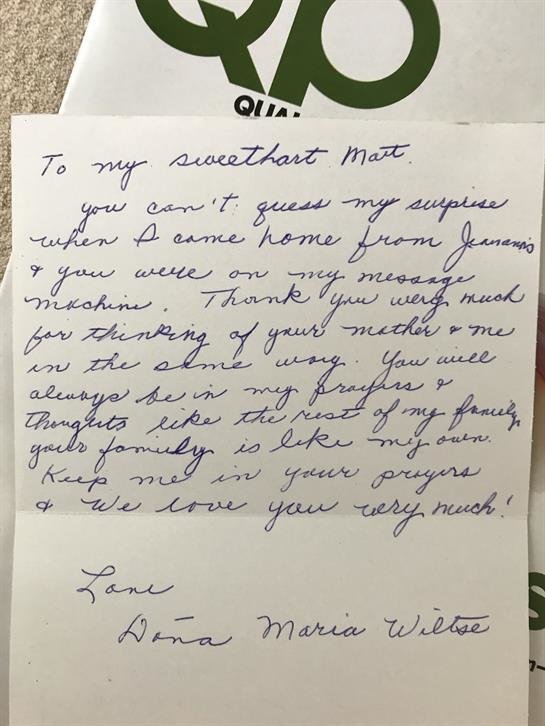 QP
QUAL
To my sweethart Matt.
you can't guess my surprise
when I came home from
& you were on my message
machine. Thank you very much
for thinking of your mother & me
in the same way. You will
always be in my prayers &
thoughts like the rest of my family,
your family is like my own.
Keep me in your prayers
& We love you very much!
Love
Doña Maria Wiltse